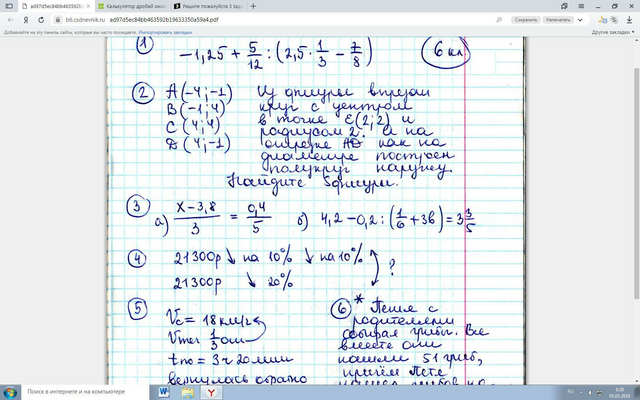 ad97d5ec84bb463592b
Калькулятор дробей онл
Решите пожалуйста 3 зад
b6.csdnevnik.ru
ad97d5ec84bb463592b19633350a59a4.pdf
Сохранить
Напечатать
Добавляйте на эту панель сайты, которые вы часто посещаете. Импортировать закладки
Другие закладки
① -1,25 + 5/12 : (2,5 · 1/3 - 7/8)
6 кл
② A(-4; -1) Из фигуры вырезан
B(-1; 4) круг с центром
C(4; 4) в точке E(2; 2) и
D(4; -1) радиусом 2. А на
отрезке AD как на
диаметре построен
полукруг наружу.
Найдите Sфигуры.
③ а) x-3,8/3 = 0,4/5 б) 4,2-0,2:(1/6+3в)=3 3/5
④ 21300р ↓ на 10% ↓ на 10%
?
21300р ↓ 20%
⑤ Vс = 18 км/ч
1/3 от
tпо = 3ч 20мин
вернулась обратно
⑥* Петя с
родителями
собирал грибы. Все
вместе они
нашли 51 гриб,
причём Петя
Поиск в интернете и на компьютере
RU